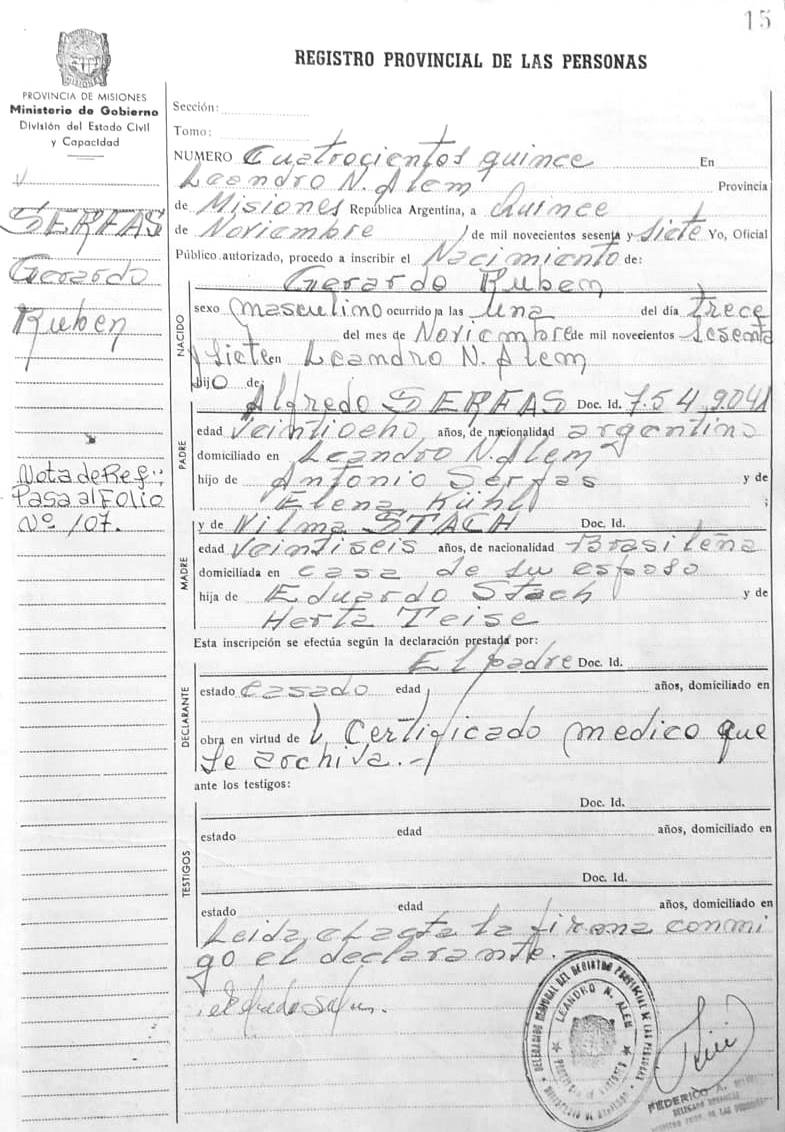 15
REGISTRO PROVINCIAL DE LAS PERSONAS
PROVINCIA DE MISIONES
Ministerio de Gobierno
División del Estado Civil
y Capacidad
SERFAS
Gerardo
Ruben
Nota de Ref:;
Pasa al Folio
Nº 107.
Sección:
Tomo:
NUMERO Cuatrocientos quince En
Leandro N. Alem Provincia
de Misiones República Argentina, a Quince
de Noviembre de mil novecientos sesenta y Siete Yo, Oficial
Público autorizado, procedo a inscribir el Nacimiento de:
NACIDO
Gerardo Ruben
sexo masculino ocurrido a las Una del día trece
del mes de Noviembre de mil novecientos Sesenta
y Siete en Leandro N. Alem
hijo de:
PADRE
Alfredo SERFAS Doc. Id. 7.549.041
edad Veintiocho años, de nacionalidad argentino
domiciliado en Leandro N. Alem
hijo de Antonio Serfas y de
Elena Kühl ;
MADRE
y de Nilma STACH Doc. Id.
edad Veintiseis años, de nacionalidad Brasileña
domiciliada en casa de su esposo
hija de Eduardo Stach y de
Herta Teise
Esta inscripción se efectúa según la declaración prestada por:
DECLARANTE
El padre Doc. Id.
estado Casado edad años, domiciliado en
obra en virtud de Certificado medico que
se archiva.-
ante los testigos:
TESTIGOS
Doc. Id.
estado edad años, domiciliado en
Doc. Id.
estado edad años, domiciliado en
Leida el acta la firma conmi
go el declarante.
DELEGACION REGIONAL DEL REGISTRO PROVINCIAL DE LAS PERSONAS
LEANDRO N. ALEM
FEDERICO A.